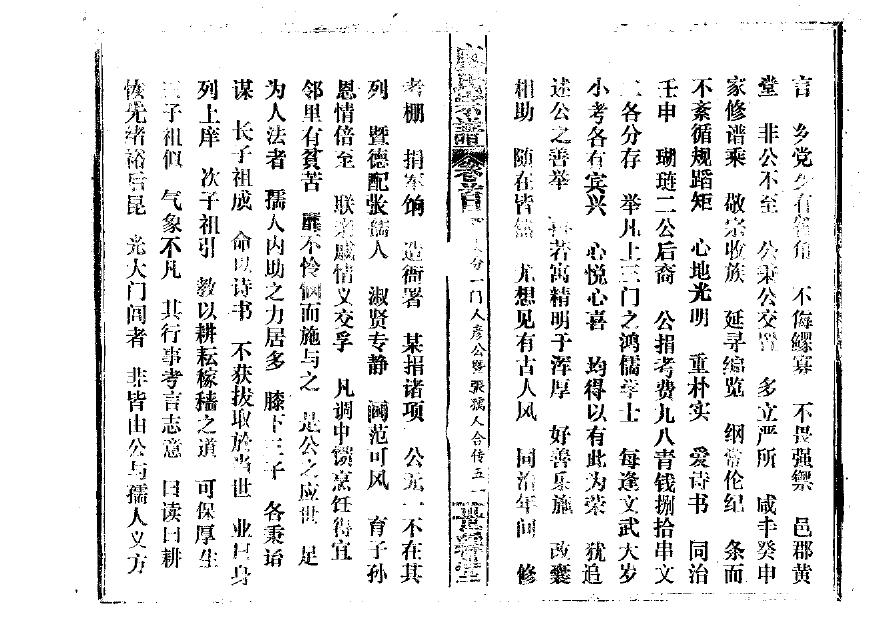 言 乡党 有 角 不侮鳏寡 不畏强禦 邑郡黄
堂 非公不至 公秉公交置 多立严所 咸丰癸申
家修谱乘 敬宗收族 延寻编览 纲常伦纪 条而
不紊循规蹈矩 心地光明 重朴实 爱诗书 同治
壬申 瑚琏二公后裔 公捐考费九八青钱捌拾串文
二各分存 举凡上三门之鸿儒学士 每逢文武大岁
小考各有宾兴 心悦心喜 均得以有此为荣 犹追
述公之善举 若寓精明于浑厚 好善乐施 改囊
相助 随在皆然 尤想见有古人风 同治年间 修
宗谱 卷首
分一门人彦公暨张孺人合传 五一
考棚 捐军饷 造衙署 某捐诸项 公无一不在其
列 暨德配张孺人 淑贤专静 阃范可风 育子孙
恩情倍至 联亲戚情义交孚 凡调中馈烹饪得宜
邻里有贫苦 罔不怜悯而施与之 是公之应世 足
为人法者 孺人内助之力居多 膝下三子 各秉诒
谋 长子祖成 命以诗书 不获拔取於当世 业已身
列上庠 次子祖引 教以耕耘稼穑之道 可保厚生
三子祖似 气象不凡 其行事考言志意 曰读曰耕
恢先绪裕后昆 光大门闾者 非皆由公与孺人义方